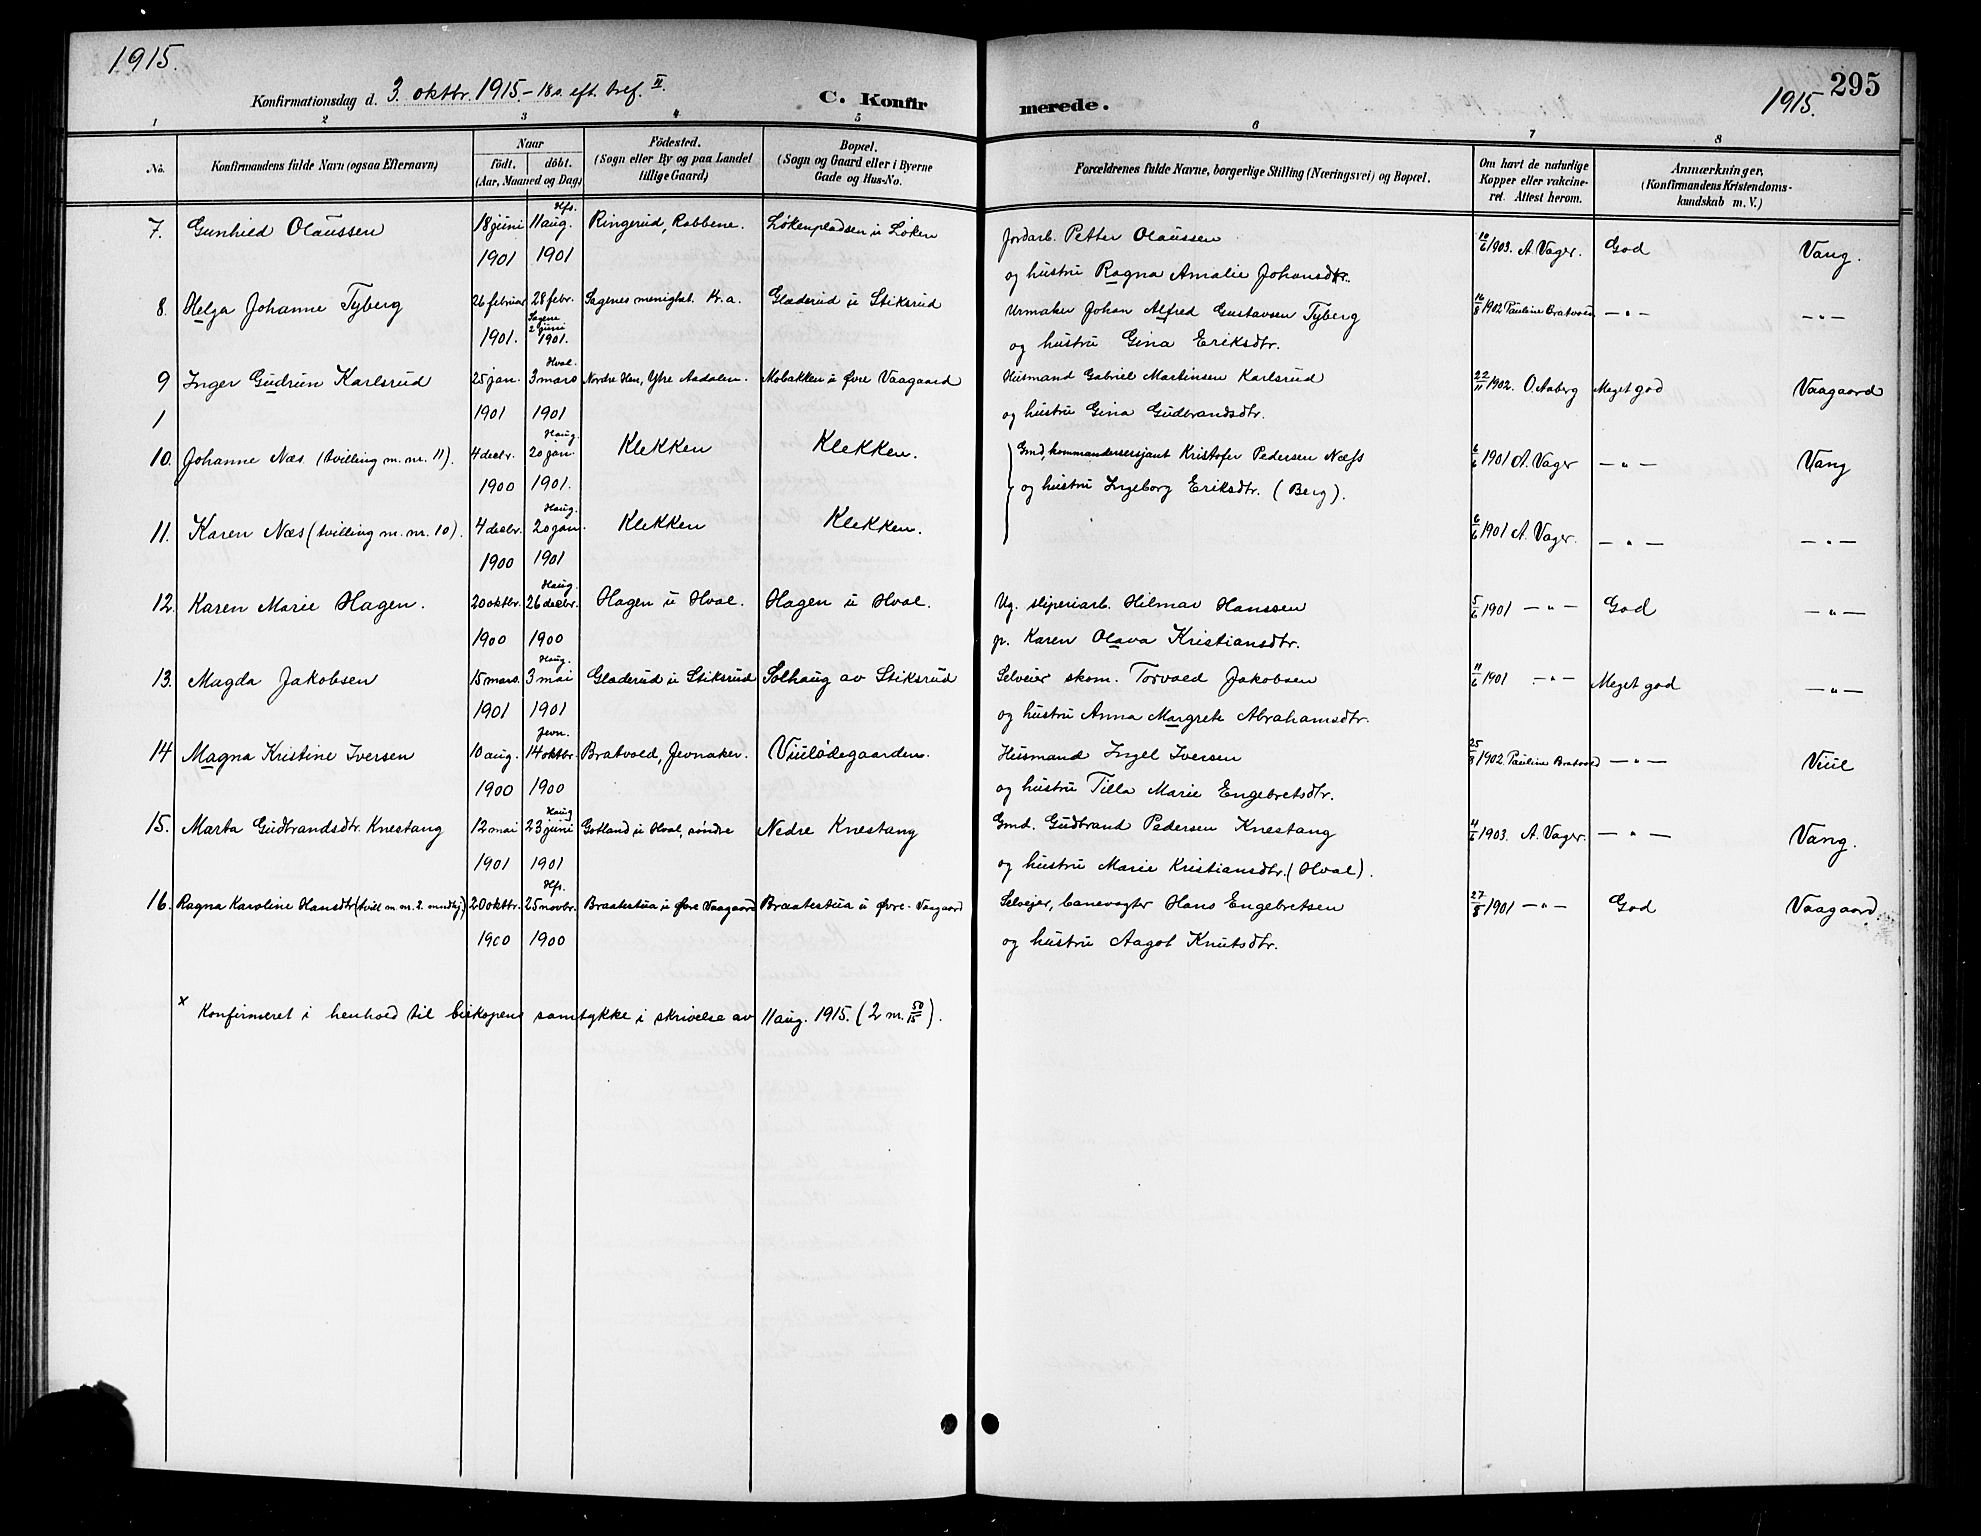 1915.
295
1915.
Konfirmationsdag d. 3. oktbr. 1915. - 18 s. eft. tref. II.
C. Konfir
merede.
1 2 3 4 5 6 7 8
No.
Konfirmandens fulde Navn (ogsaa Efternavn)
Naar
födt. döbt.
(Aar, Maaned og Dag)
Födested.
(Sogn eller By og paa Landet
tillige Gaard)
Bopæl.
(Sogn og Gaard eller i Byerne
Gade og Hus-No.
Forældrenes fulde Navne, borgerlige Stilling (Næringsvei) og Bopæl.
Om havt de naturlige
Kopper eller vakcine-
ret. Attest herom.
Anmærkninger,
(Konfirmandens Kristendoms-
kundskab m. V.)
Hfs.
7. Gunhild Olaussen 18 juni 11 aug. Ringerud, Robbene. Løkenpladsen u Løken Jordarb. Petter Olaussen 10/6 1903. A. Vager. God Vang.
1901 1901 og hustru Ragna Amalie Johansdtr.
8. Helga Johanne Tyberg 26 februar 28 febr. Sagenes menighet. Kr.a. Glæderud u Stiksrud Urmaker Johan Alfred Gustavsen Tyberg 16/8 1902 Pauline Bratvold — " — — " —
Sagene
1901. 2 juni
1901.
og hustru Gina Eriksdtr.
Hval.
9 Inger Gudrun Karlsrud 25 jan. 3 mars Nordre Hen, Ytre Aadalen. Mobakken u Øvre Vaagaard Husmand Gabriel Martinsen Karlsrud 22/11 1902. O. Aaberg Meget god Vaagaard
1 1901 1901 og hustru Gina Gudbrandsdtr.
Haug.
10. Johanne Næs (tvilling m. nr. 11). 4 decbr. 20 jan. Klekken Klekken. Gmd, kommandersersjant Kristofer Pedersen Næss 6/6 1901 A. Vager — " — Vang
1900 1901. og hustru Ingeborg Eriksdtr. (Berg).
Haug.
11. Karen Næs (tvilling m. nr. 10). 4 decbr. 20 jan. Klekken Klekken. 6/6 1901 A. Vager. — " — — " —
1900 1901
Haug.
12. Karen Marie Hagen. 20 oktbr. 26 decbr. Hagen u Hval. Hagen u Hval. Ug. sliperiarb. Hilmar Hanssen 5/6 1901 — " — God — " —
1900 1900 p. Karen Olava Kristiansdtr.
Haug.
13. Magda Jakobsen 15 mars. 3 mai Glæderud u Stiksrud Solhaug av Stiksrud Selveier skom. Torvald Jakobsen 11/6 1901 — " — Meget god — " —
1901 1901 og hustru Anna Margrete Abrahamsdtr.
Jevn.
14 Magna Kristine Iversen 10 aug. 14 oktbr. Bratvold, Jevnaker. Viulødegaarden. Husmand Ingel Iversen 25/8 1902. Pauline Bratvold — " — Viul
1900 1900 og hustru Tilla Marie Engebretsdtr.
Haug
15. Marta Gudbrandsdtr. Knestang 12 mai 23 juni Gotland u Hval, søndre Nedre Knestang Gmd. Gudbrand Pedersen Knestang 4/6 1903. A. Vager. — " — Vang.
1901 1901 og hustru Marie Kristiansdtr. (Hval).
Hfs.
16. Ragna Karoline Hansdtr (tvill m. nr. 2. mandkj) 20 oktbr. 25 novbr. Braatestua u Øvre Vaagaard Braatestua u Øvre Vaagaard Selveier, banevogter Hans Engebretsen 27/8 1901 — " — God Vaagaard
1900 1900 og hustru Aagot Knutsdtr.
x Konfirmeret i henhold til biskopens samtykke i skrivelse av 11 aug. 1915. (2 nr. 50/15).